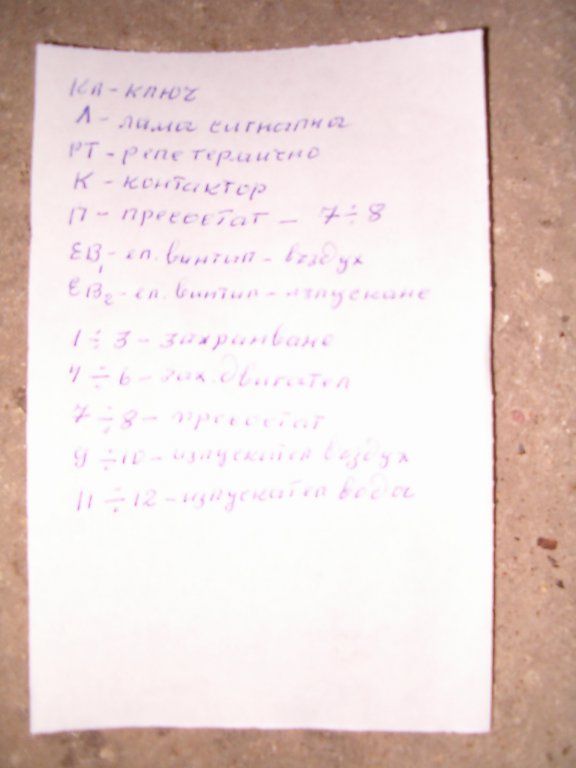 Кл - ключ
Л - лампа сигнална
РТ - реле термично
К - контактор
П - пресостат - 7÷8
ЕВ1 - ел. винтил - въздух
ЕВ2 - ел. винтил - изпускане
1÷3 - захранване
4÷6 - зах. двигател
7÷8 - пресостат
9÷10 - изпускател въздух
11÷12 - изпускател вода